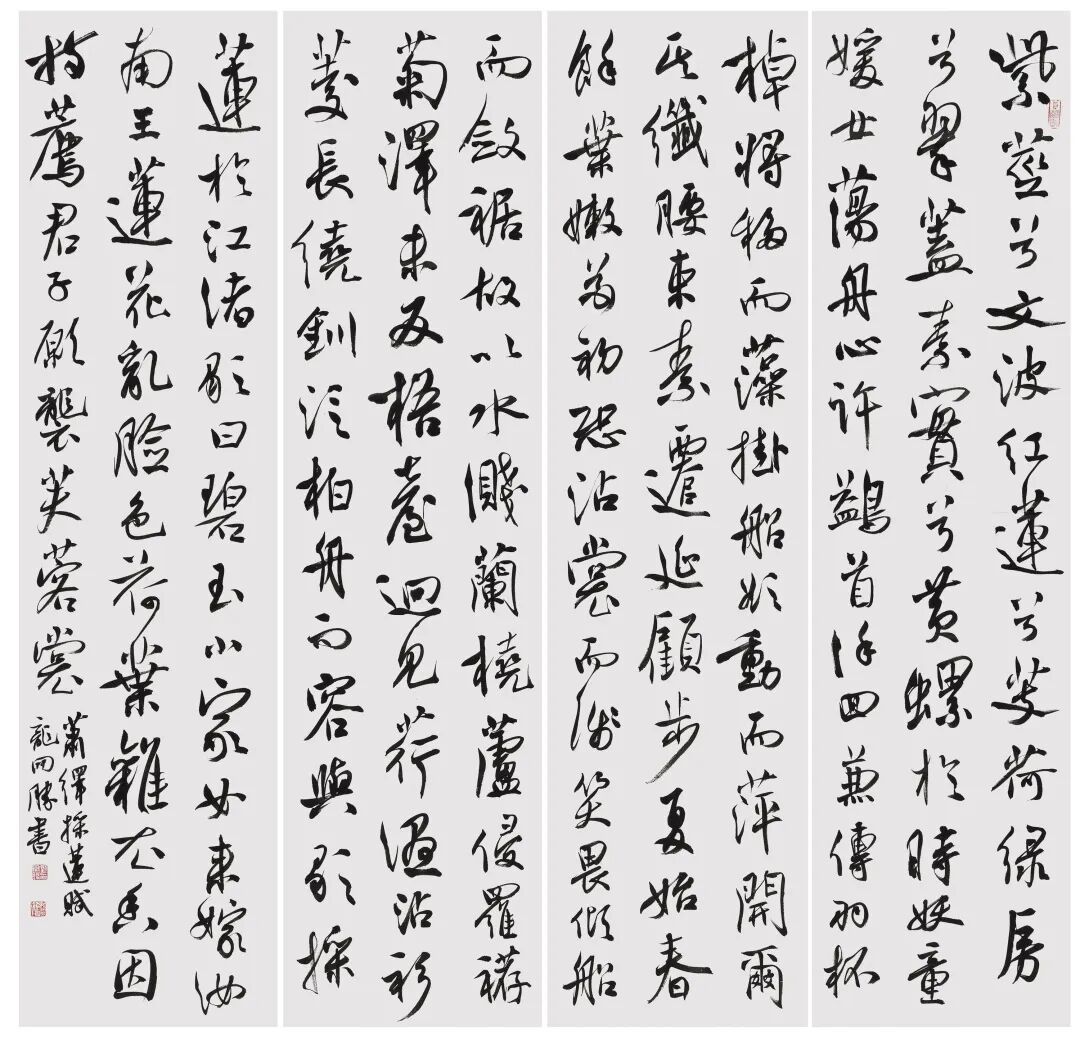 紫莖兮文波红蓮兮芰荷绿房
兮翠蓋素實兮黄螺於時妖童
媛女蕩舟心许鷁首徐回兼傳羽杯
棹將移而藻掛船欲動而萍開爾
其纖腰束素遷延顧步夏始春
餘葉嫩花初恐沾裳而淺笑畏傾船
而斂裾故以水濺蘭橈蘆侵羅
菊澤未反梧臺迥見荇濕沾衫
菱長繞釧泛柏舟而容與歌採
蓮於江渚歌曰碧玉小家女來嫁汝
南王蓮花亂臉色荷葉雜衣香因
持薦君子願襲芙蓉裳
蕭繹採蓮賦
龍開勝書